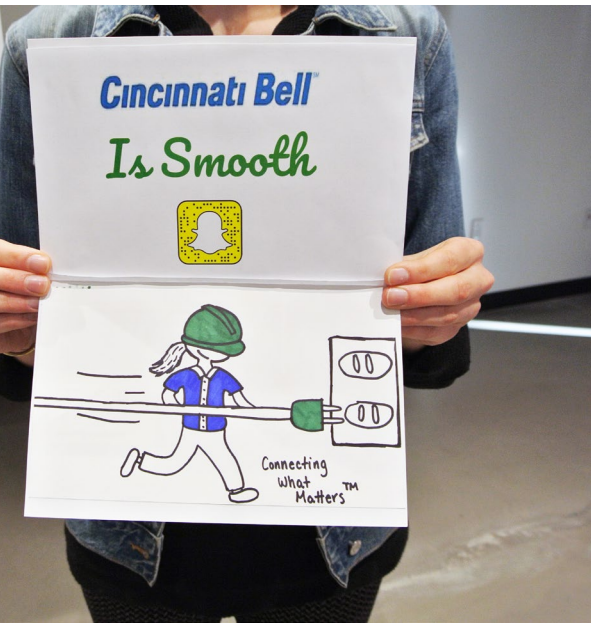 Cincinnati Bell™
Is Smooth
Connecting
What
Matters™